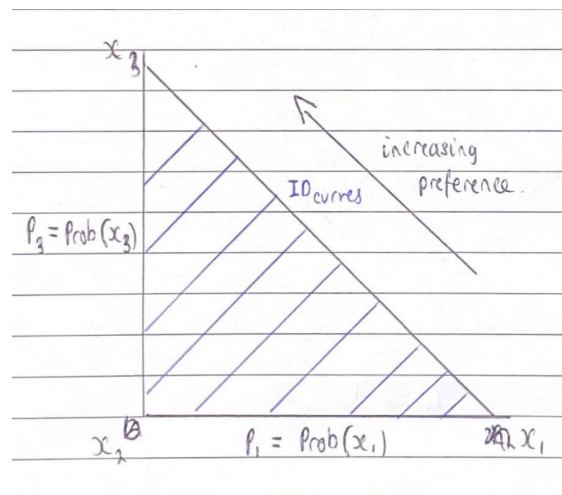 x₃
increasing
preference.
ID curves
P₃ = Prob(x₃)
x₂
P₁ = Prob(x₁)
x₁